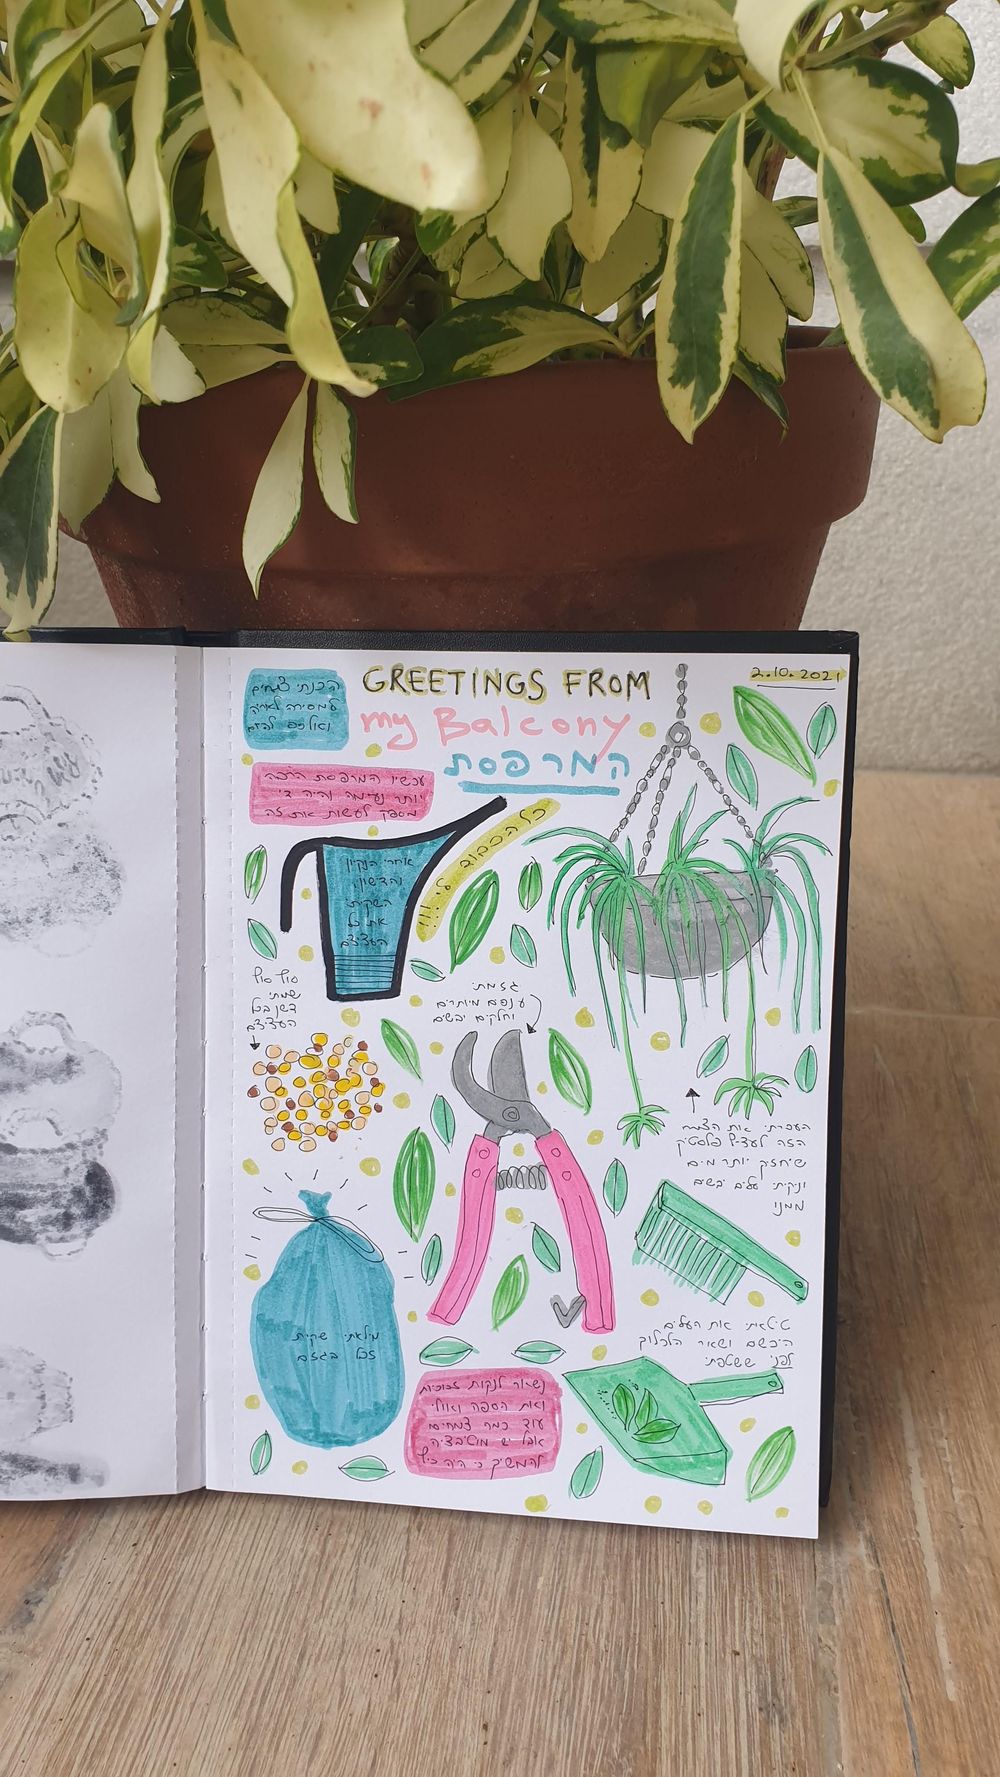 GREETINGS FROM
my Balcony
המרפסת
2.10.2021
הכנתי צמחים
למסירה לאחי
ואולי גם להדס
עכשיו המרפסת הרבה
יותר נעימה והיה די
מספק לעשות את זה
כל הכבוד לי!!!
אחרי הניקיון
והדישון
השקיתי
את כל
העציצים
סוף סוף
שמתי
דשן בכל
העציצים
גזמתי
ענפים מיותרים
וחלקים יבשים
העברתי את הצמח
הזה לעציץ פלסטיק
שיחזיק יותר מים
וניקיתי עלים יבשים
ממנו
מילאתי שקית
זבל בגזם
טיטאתי את העלים
היבשים ושאר הלכלוך
לפני ששטפתי
נשאר לנקות זכוכיות
ואת הספה ואולי
עוד כמה צמחים
אבל יש מוטיבציה
להמשיך כי היה כיף